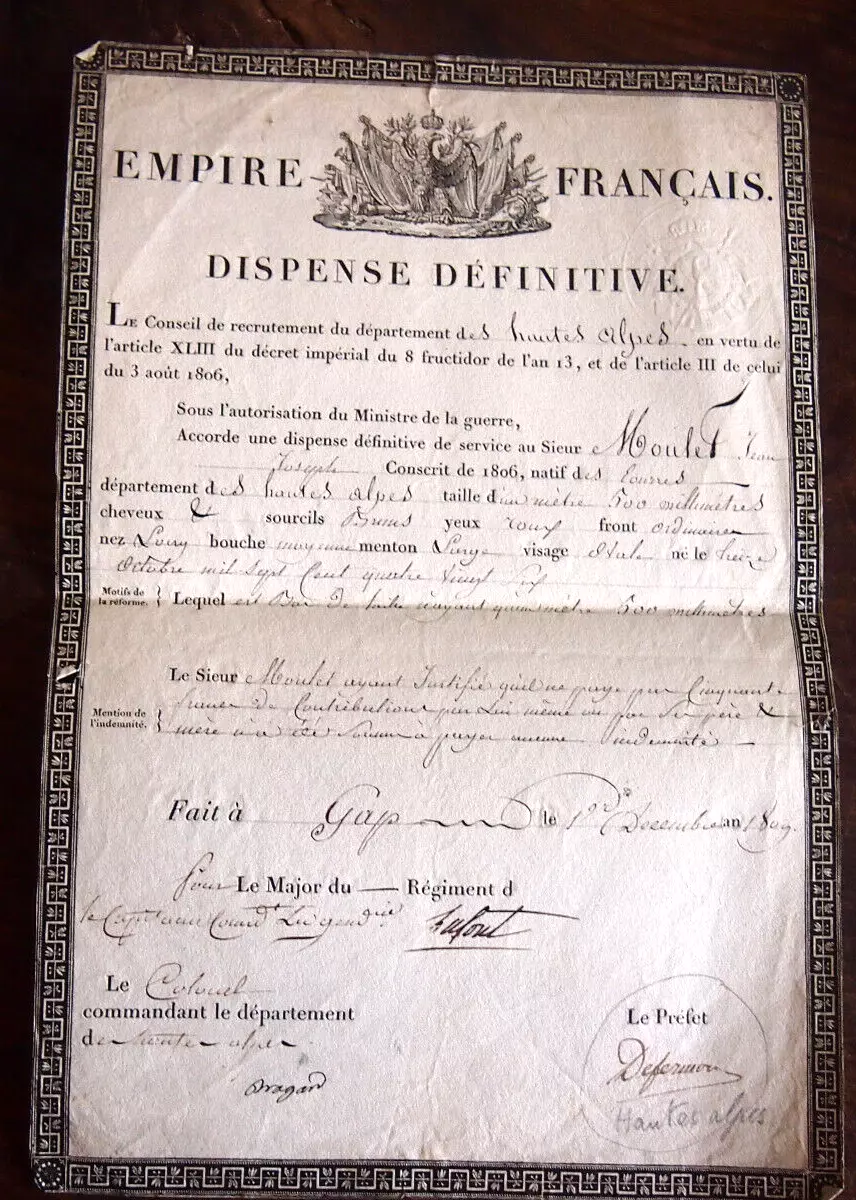 EMPIRE FRANÇAIS.
DISPENSE DÉFINITIVE.
LE Conseil de recrutement du département des hautes alpes en vertu de
l'article XLIII du décret impérial du 8 fructidor de l'an 13, et de l'article III de celui
du 3 août 1806,
Sous l'autorisation du Ministre de la guerre,
Accorde une dispense définitive de service au Sieur Moulet Jean
Joseph Conscrit de 1806, natif des
département des hautes alpes taille d'un mètre 500 millimètres
cheveux & sourcils Bruns yeux roux front ordinaire
nez bouche moyenne menton Large visage ovale né le
octobre mil sept Cent quatre vingt Six
Motifs de
la réforme. } Lequel est 500 millimètres
Le Sieur Moulet ayant Justifié qu'il ne paye pas Cinquante
Mention de
l'indemnité. } francs de Contributions par Lui même ou par Ses père &
mère n'a été Soumis à payer aucune indemnité
Fait à Gap le 1er Décembre an 1809.
pour Le Major du — Régiment d
le Capitaine Comt La gendrie
Le Colonel
commandant le département
des hautes alpes.
Le Préfet
Defermon
Hautes alpes